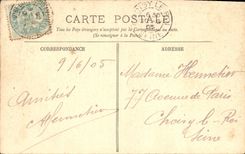 CARTE POSTALE
Tous les pays étrangers n'acceptent pas la Correspondance au recto
(Se renseigner à la Poste)
CORRESPONDANCE
ADRESSE
9/6/05
Amitiés
AHennetier
Madame Hennetier
77 Avenue de Paris
Choisy le Roi
Seine